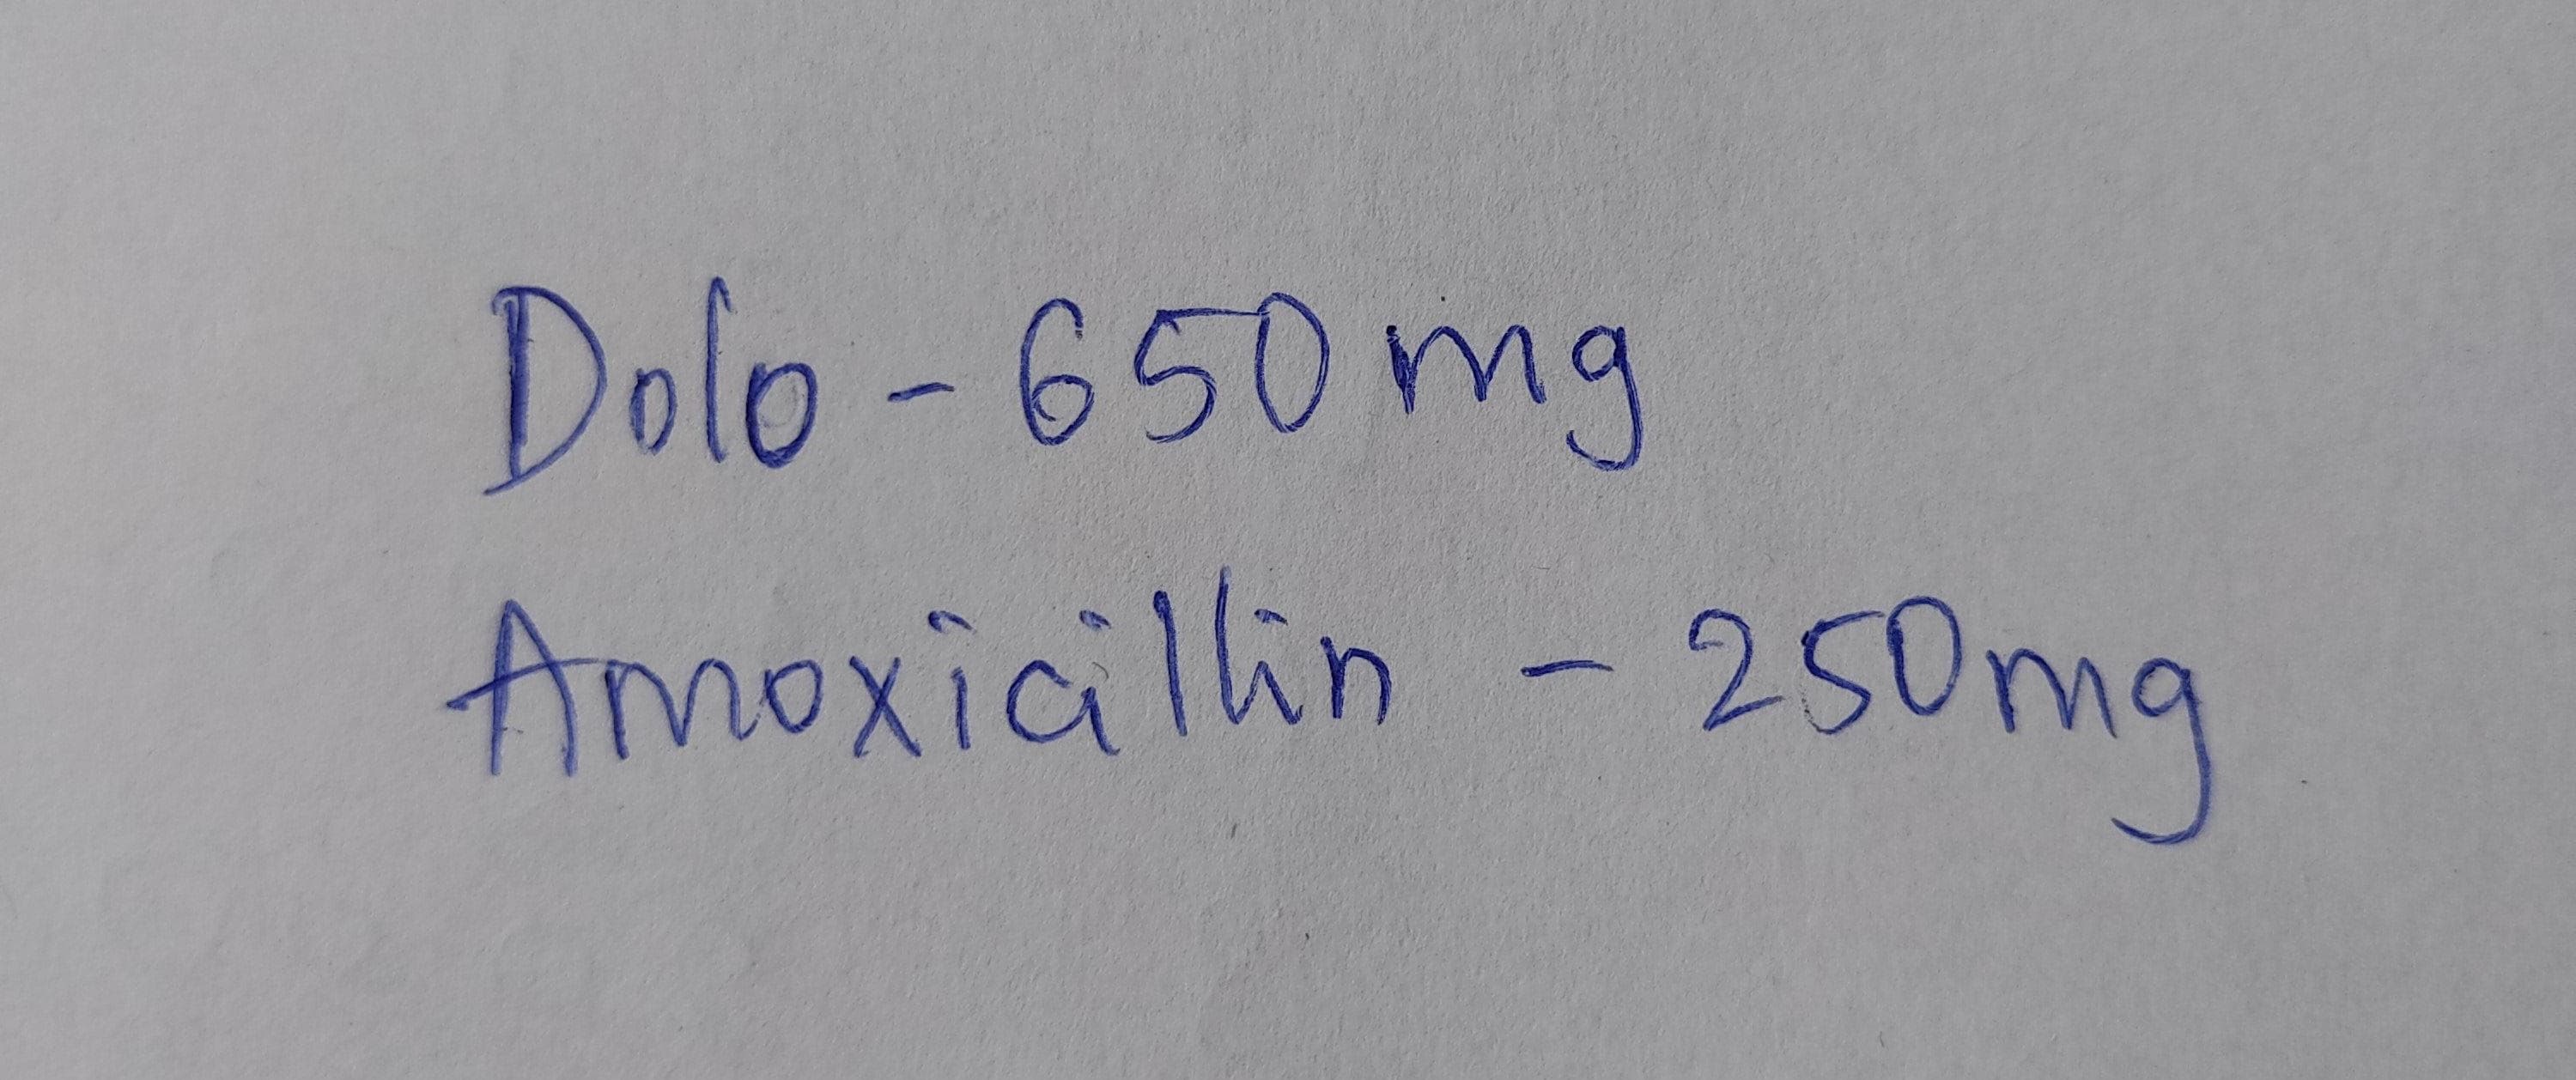 Dolo - 650 mg
Amoxicillin - 250mg